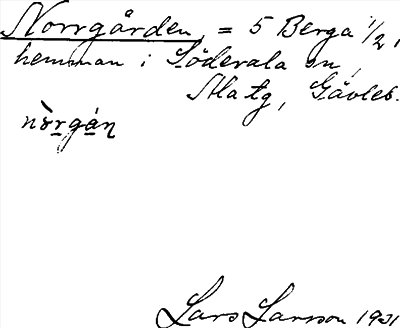 Norrgården, = 5 Berga 1/2,
hemman i Söderala sn,
Ala tg, Gävleb.
nòrgán
Lars Larsson 1931